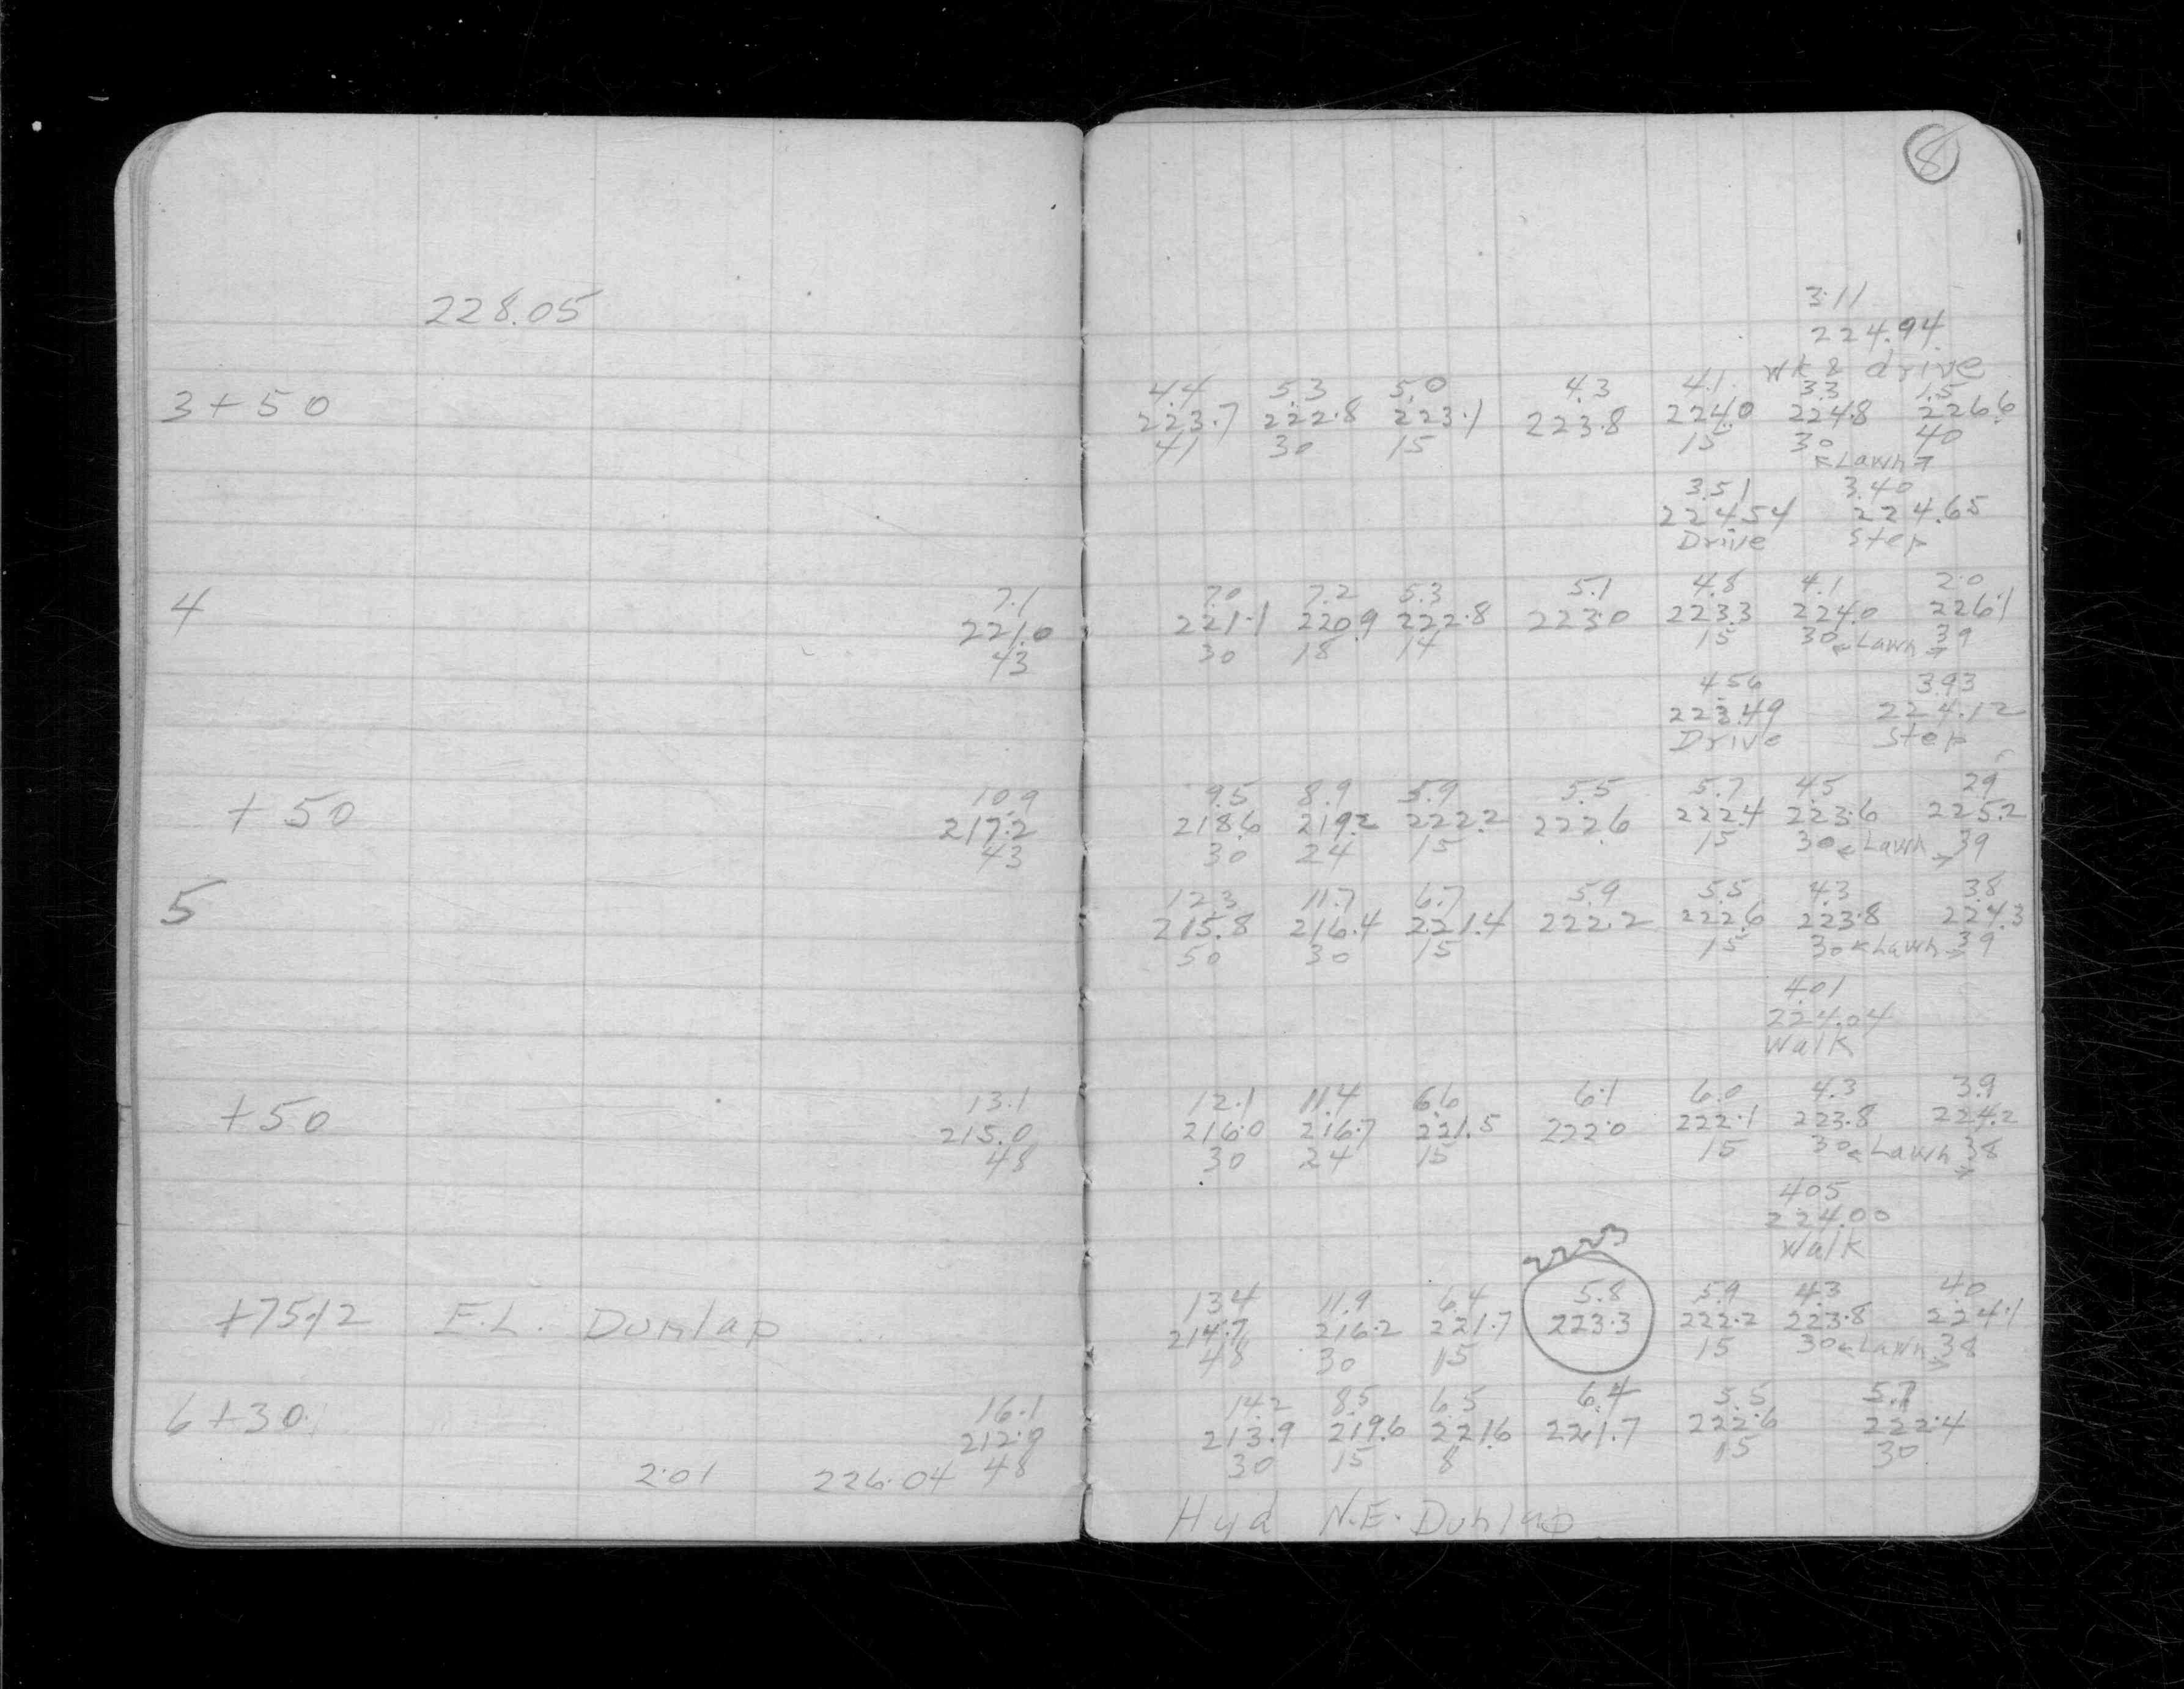 8
3.11
228.05
224.94
wk & drive
4.4 5.3 5.0 4.3 4.1 3.3 1.5
3+50 223.7 222.8 223.1 223.8 224.0 224.8 226.6
41 30 15 15 30 40
←Lawn→
3.51 3.40
224.54 224.65
Drive Step
7.1 7.0 7.2 5.3 5.1 4.8 4.1 2.0
4 221.0 221.1 220.9 222.8 223.0 223.3 224.0 226.1
43 30 18 14 15 30 ←Lawn→ 39
4.56 3.93
223.49 224.12
Drive Step
10.9 9.5 8.9 5.9 5.5 5.7 4.5 2.9
+50 217.2 218.6 219.2 222.2 222.6 222.4 223.6 225.2
43 30 24 15 15 30 ←Lawn→ 39
12.3 11.7 6.7 5.9 5.5 4.3 3.8
5 215.8 216.4 221.4 222.2 222.6 223.8 224.3
50 30 15 15 30 ←Lawn→ 39
4.01
224.04
Walk
13.1 12.1 11.4 6.6 6.1 6.0 4.3 3.9
+50 215.0 216.0 216.7 221.5 222.0 222.1 223.8 224.2
48 30 24 15 15 30 ←Lawn→ 38
4.05
224.00
Walk
222.3
13.4 11.9 6.4 5.8 5.9 4.3 4.0
+75.12 E.L. Dunlap 214.7 216.2 221.7 223.3 222.2 223.8 224.1
48 30 15 15 30 ←Lawn→ 38
16.1 14.2 8.5 6.5 6.4 5.5 5.7
6+30 212.0 213.9 219.6 221.6 221.7 222.6 222.4
2.01 226.04 48 30 15 8 15 30
Hyd N.E. Dunlap